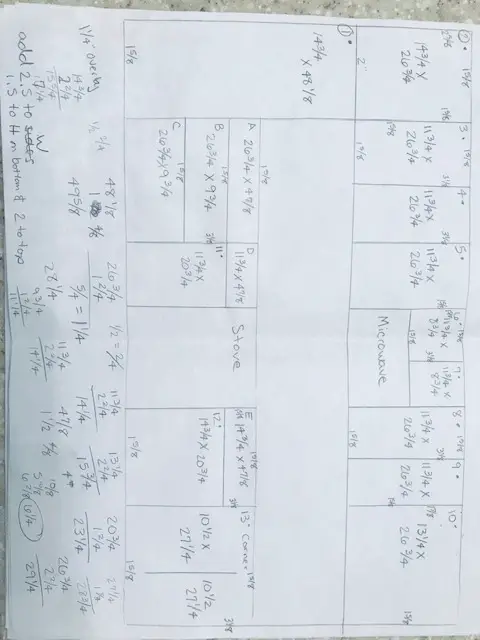 1 •
14 3/4
x 48 1/8
1 5/8
2 •
2 3/8
1 5/8
14 3/4 x
26 3/4
2"
3 •
1 5/8
11 3/4 x
26 3/4
1 5/8
4 •
11 3/4 x
26 3/4
5 •
11 3/4 x
26 3/4
6 •
11 3/4 x
8 3/4
7 •
11 3/4 x
8 3/4
Microwave
8 •
11 3/4 x
26 3/4
1 5/8
9 •
11 3/4 x
26 3/4
10 •
13 1/4 x
26 3/4
A 26 3/4 x 4 7/8
B
26 3/4 x 9 3/4
C
26 3/4 x 9 3/4
D
11 3/4 x 4 7/8
11 •
11 3/4 x
20 3/4
Stove
E
14 3/4 x 4 7/8
12 •
14 3/4 x 20 3/4
1 5/8
13 • Corner
10 1/2 x
27 1/4
10 1/2
27 1/4
3/8
1 5/8
1 1/4" overlay
14 3/4
2 2/4
17 1/4
add 2.5 to W
1.5 to H on bottom & 2 to top
48 1/8
49 5/8
26 3/4
1 2/4
5/4 = 1 1/4
28 1/4
1/2 = 2/4
9 3/4
11 3/4
2 2/4
14 1/4
11 3/4
2 2/4
14 1/4
4 7/8
1 1/2 4/8
13 1/4
2 2/4
15 3/4
20 3/4
1 2/4
27 1/4
26 3/4
2 2/4
29 1/4